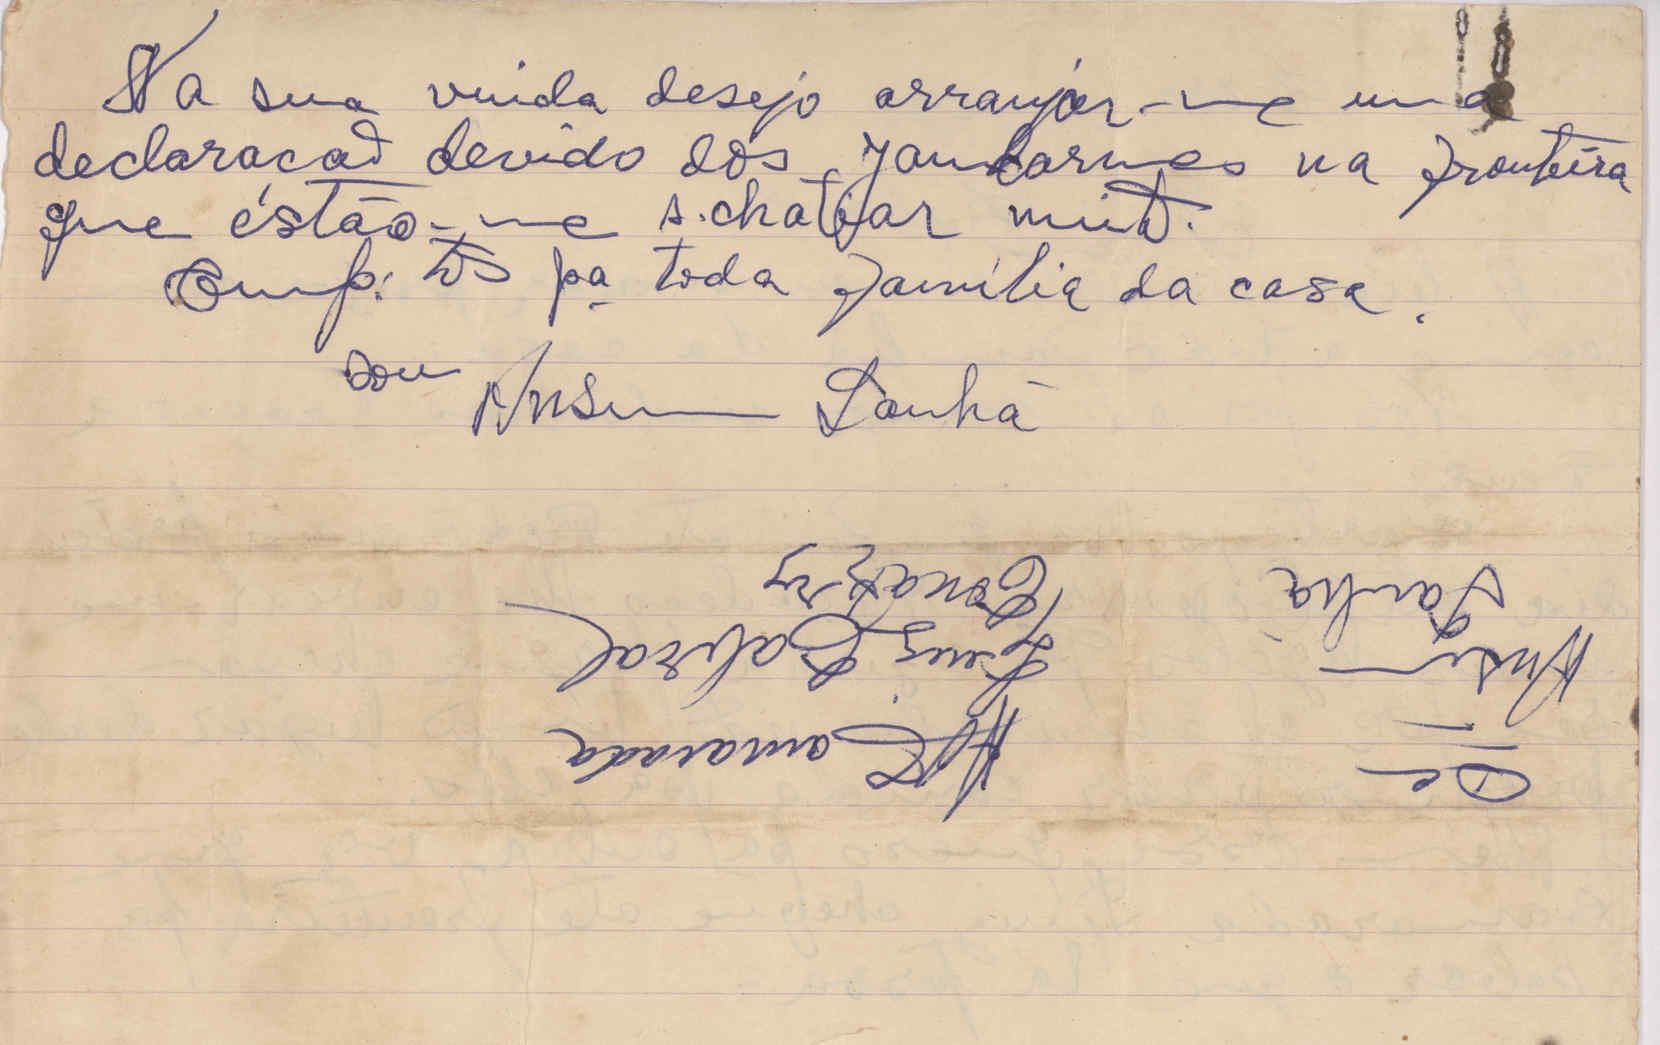 Na sua vinda desejo arranjar-me uma
declaracaõ devido dos jandarmes na fronteira
que éstão-me a.chatiar muitº.
Comp: tºs pa toda família da casa.
sou Ansum Sanhá
Conakry
Sanhá
Luiz Cabral
Ansum
Camarada
De